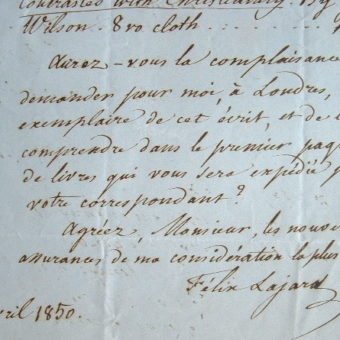 contrasted with Christianity. By
Wilson. 8vo cloth.
Aurez-vous la complaisance
demander pour moi, à Londres,
exemplaire de cet écrit, et de
comprendre dans le premier paq
de livres qui vous sera expédié p
votre correspondant ?
Agréez, Monsieur, les nouve
assurances de ma considération la plus
Félix Lajard
vril 1850.